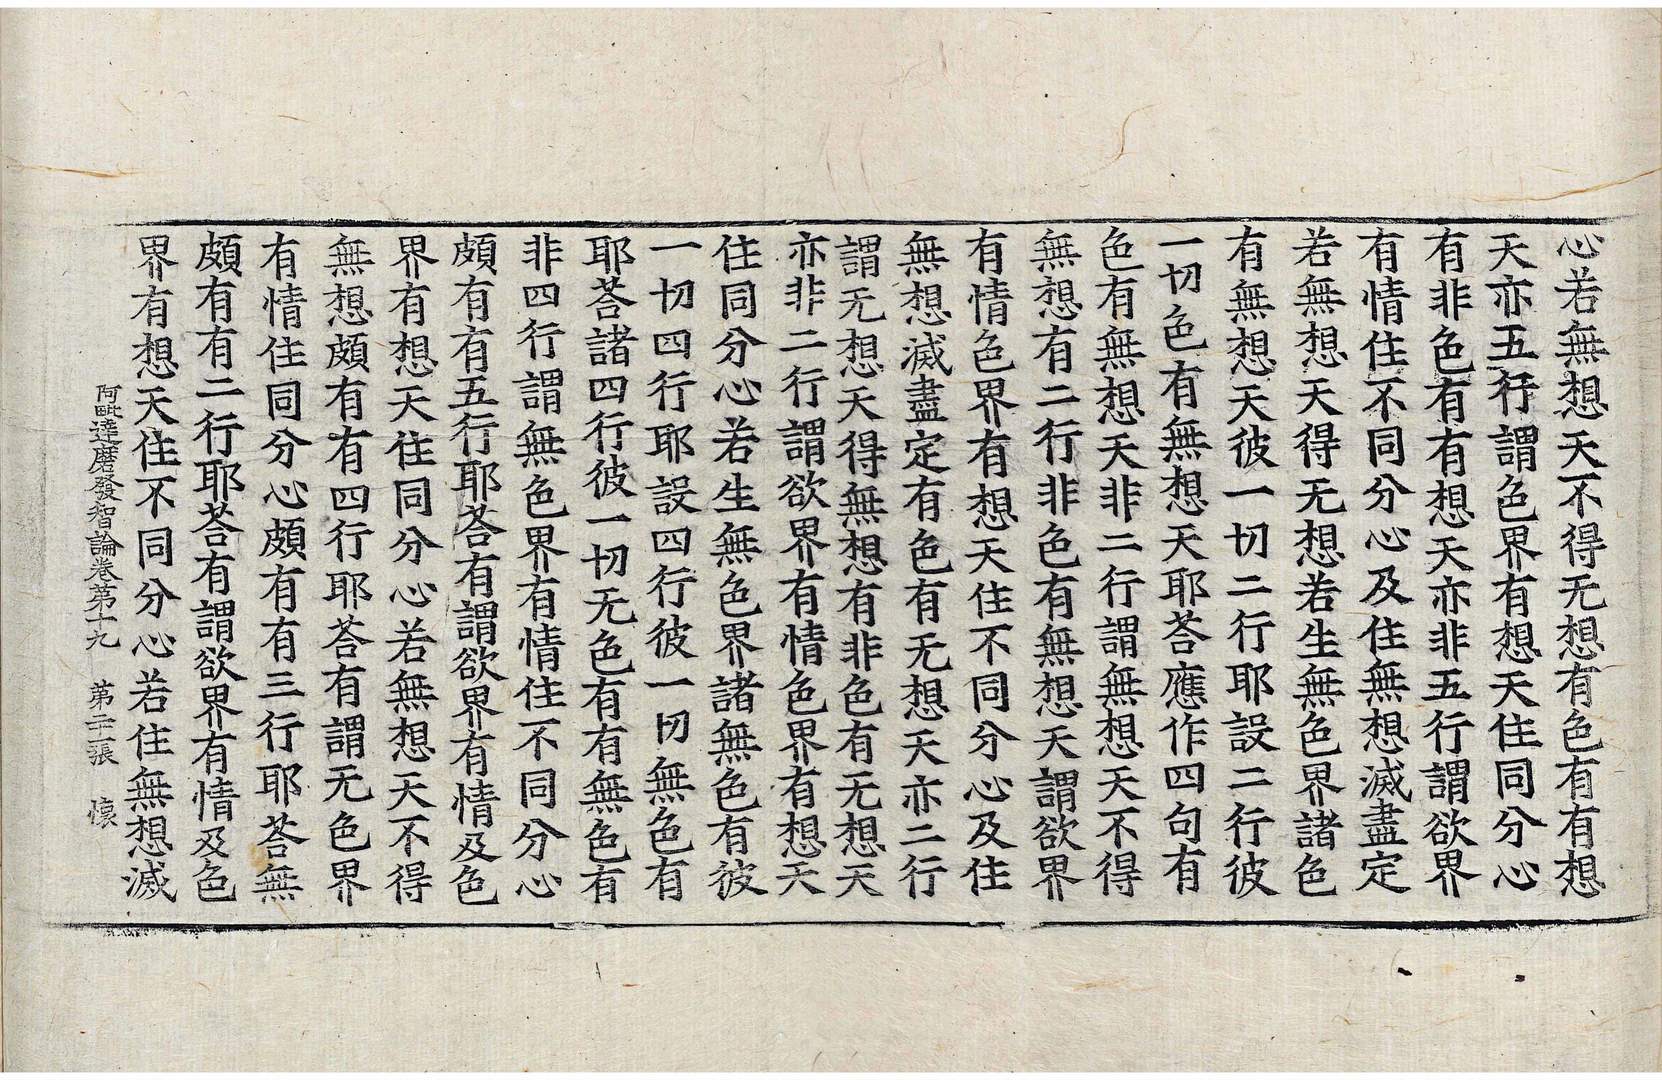 心若無想天不得无想有色有有想
天亦五行謂色界有想天住同分心
有非色有有想天亦非五行謂欲界
有情住不同分心及住無想滅盡定
若無想天得无想若生無色界諸色
有無想天彼一切二行耶設二行彼
一切色有無想天耶荅應作四句有
色有無想天非二行謂無想天不得
無想有二行非色有無想天謂欲界
有情色界有想天住不同分心及住
無想滅盡定有色有无想天亦二行
謂无想天得無想有非色有无想天
亦非二行謂欲界有情色界有想天
住同分心若生無色界諸無色有彼
一切四行耶設四行彼一切無色有
耶荅諸四行彼一切无色有有無色有
非四行謂無色界有情住不同分心
頗有有五行耶荅有謂欲界有情及色
界有想天住同分心若無想天不得
無想頗有有四行耶荅有謂无色界
有情住同分心頗有有三行耶荅無
頗有有二行耶荅有謂欲界有情及色
界有想天住不同分心若住無想滅
阿毗達磨發智論卷第十九　第張　懷